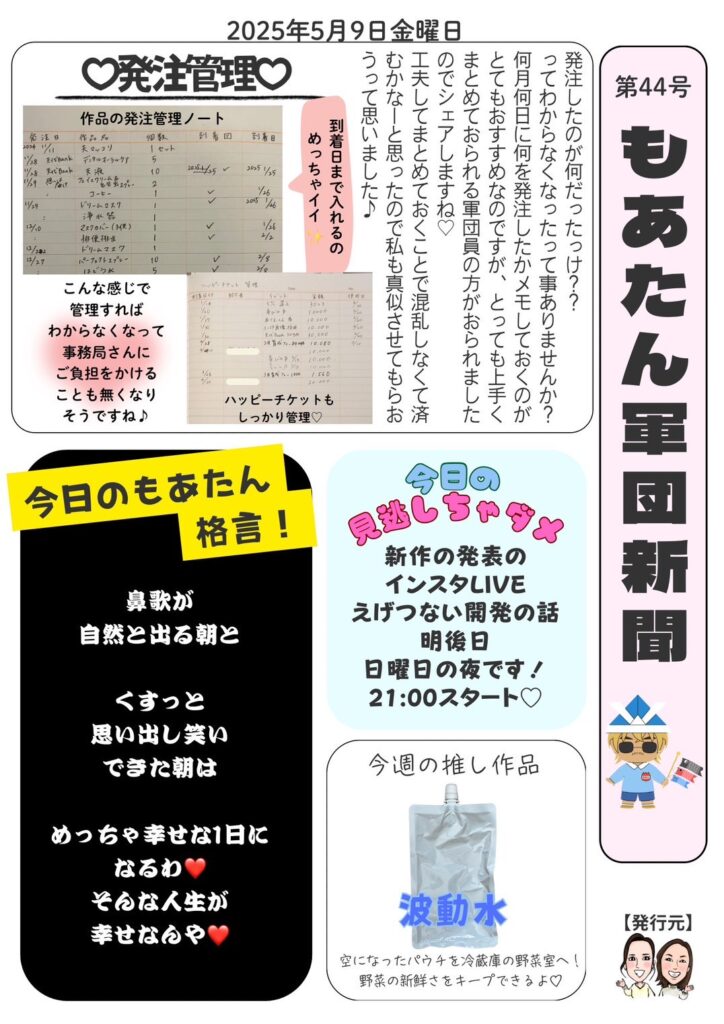 2025年5月9日金曜日
第44号
もあたん軍団新聞
♡発注管理♡
発注したのが何だったっけ??
ってわからなくなったって事ありませんか?
何月何日に何を発注したかメモしておくのが
とてもおすすめなのですが、とっても上手く
まとめておられる軍団員の方がおられました
のでシェアしますね♡
工夫してまとめておくことで混乱しなくて済
むかなーと思ったので私も真似させてもらお
うって思いました♪
作品の発注管理ノート
発注日 作品名 個数 到着 到着日
コーヒー 1 ✓ 1/26
ドリームマスク 1
浄水器 1
12/10
排便排出 1 ✓ 2/2
ドリームマスク 1
12/27
到着日まで入れるの
めっちゃイイ✨
こんな感じで
管理すれば
わからなくなって
事務局さんに
ご負担をかける
ことも無くなり
そうですね♪
ハッピーチケット管理
ハッピーチケットも
しっかり管理♡
今日のもあたん
格言!
鼻歌が
自然と出る朝と
くすっと
思い出し笑い
できた朝は
めっちゃ幸せな1日に
なるわ❤
そんな人生が
幸せなんや❤
今日の
見逃しちゃダメ
新作の発表の
インスタLIVE
えげつない開発の話
明後日
日曜日の夜です!
21:00スタート♡
今週の推し作品
波動水
空になったパウチを冷蔵庫の野菜室へ!
野菜の新鮮さをキープできるよ♡
【発行元】